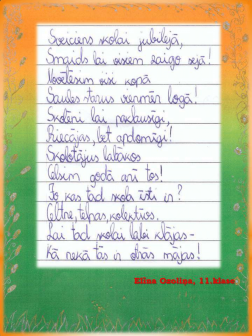 Sveiciens skolai jubilejā,
Smaids lai visiem raigo sejā!
Novēlēsim visi kopā
Saules starus vienmēr logā!
Skolēni lai paklausīgi,
Priecājas, bet apdomīgi!
Skolotājus labākos
Celsim godā arī tos!
Jo kas tad skola īsti ir?
Eltne, telpas, kolektīvs.
Lai tad skolai labi klājas-
Kā nekā tās ir otrās mājas!
Elīna Ozoliņa, 11.klase